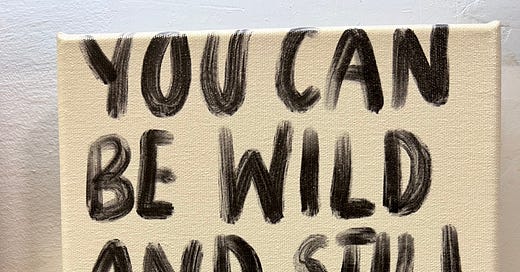 YOU CAN
BE WILD
AND STILL